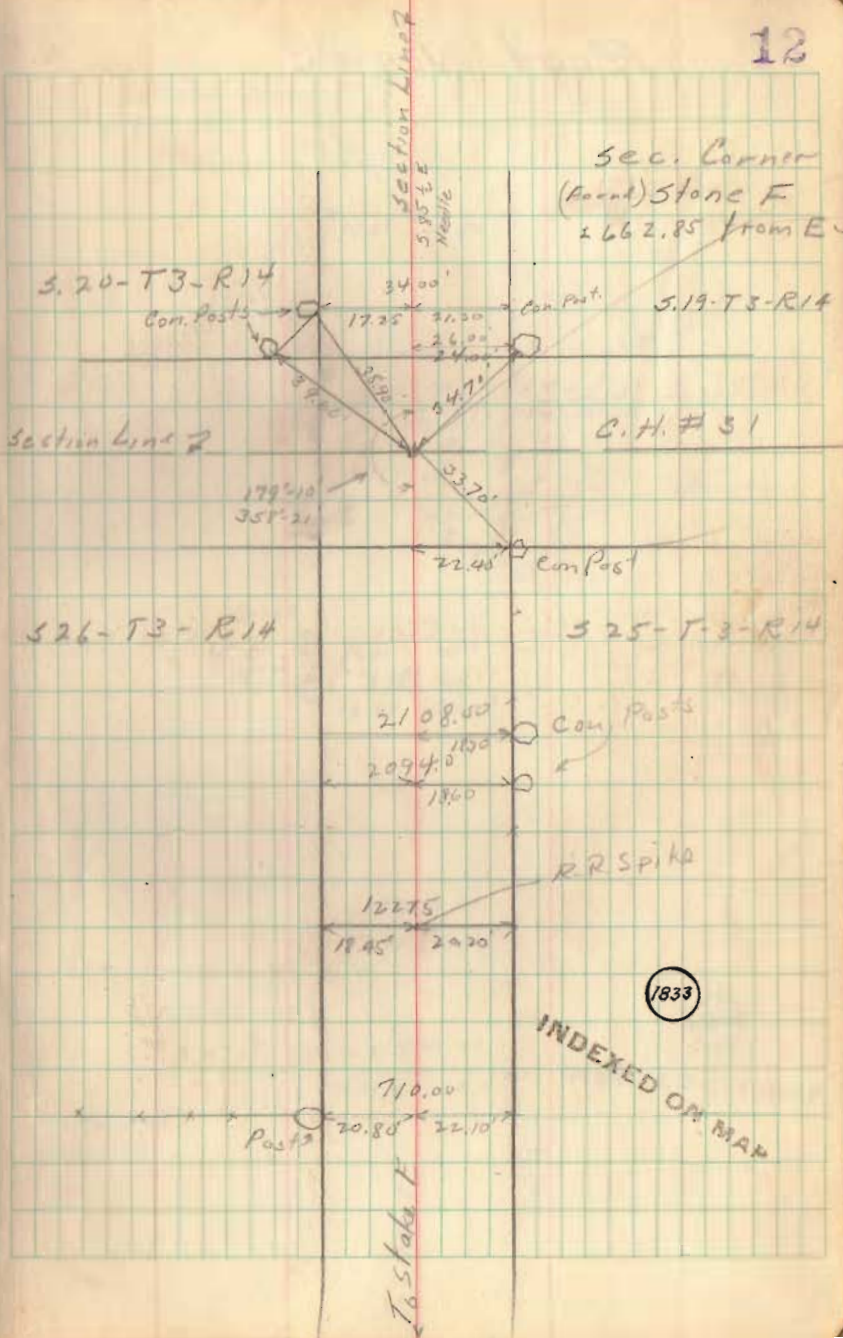 12
Section Line
S 85 ½ E
Needle
Sec. Corner
(Found) Stone F
2662.85 from E
S. 20-T3-R14
34.00'
Con. Posts
17.25 21.20
Con Post.
S.19-T3-R14
26.00'
24.00'
35.90'
34.71'
Section Line
C.H. # 31
33.70'
179°-10
358°-21
22.40'
Con Post
S 26-T3-R14
S 25-T-3-R14
2108.50
Con Posts
2094.0
18.60
R.R Spike
1227.5
18.45' 20.20'
1833
INDEXED ON MAP
710.00
Posts 20.80' 22.10'
To Stake E